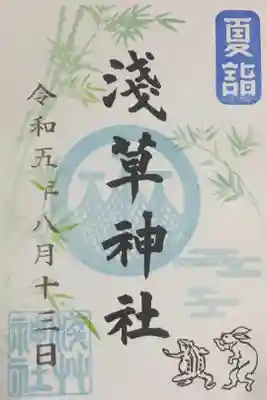 夏詣
淺草神社
令和五年八月十三日
淺草神社